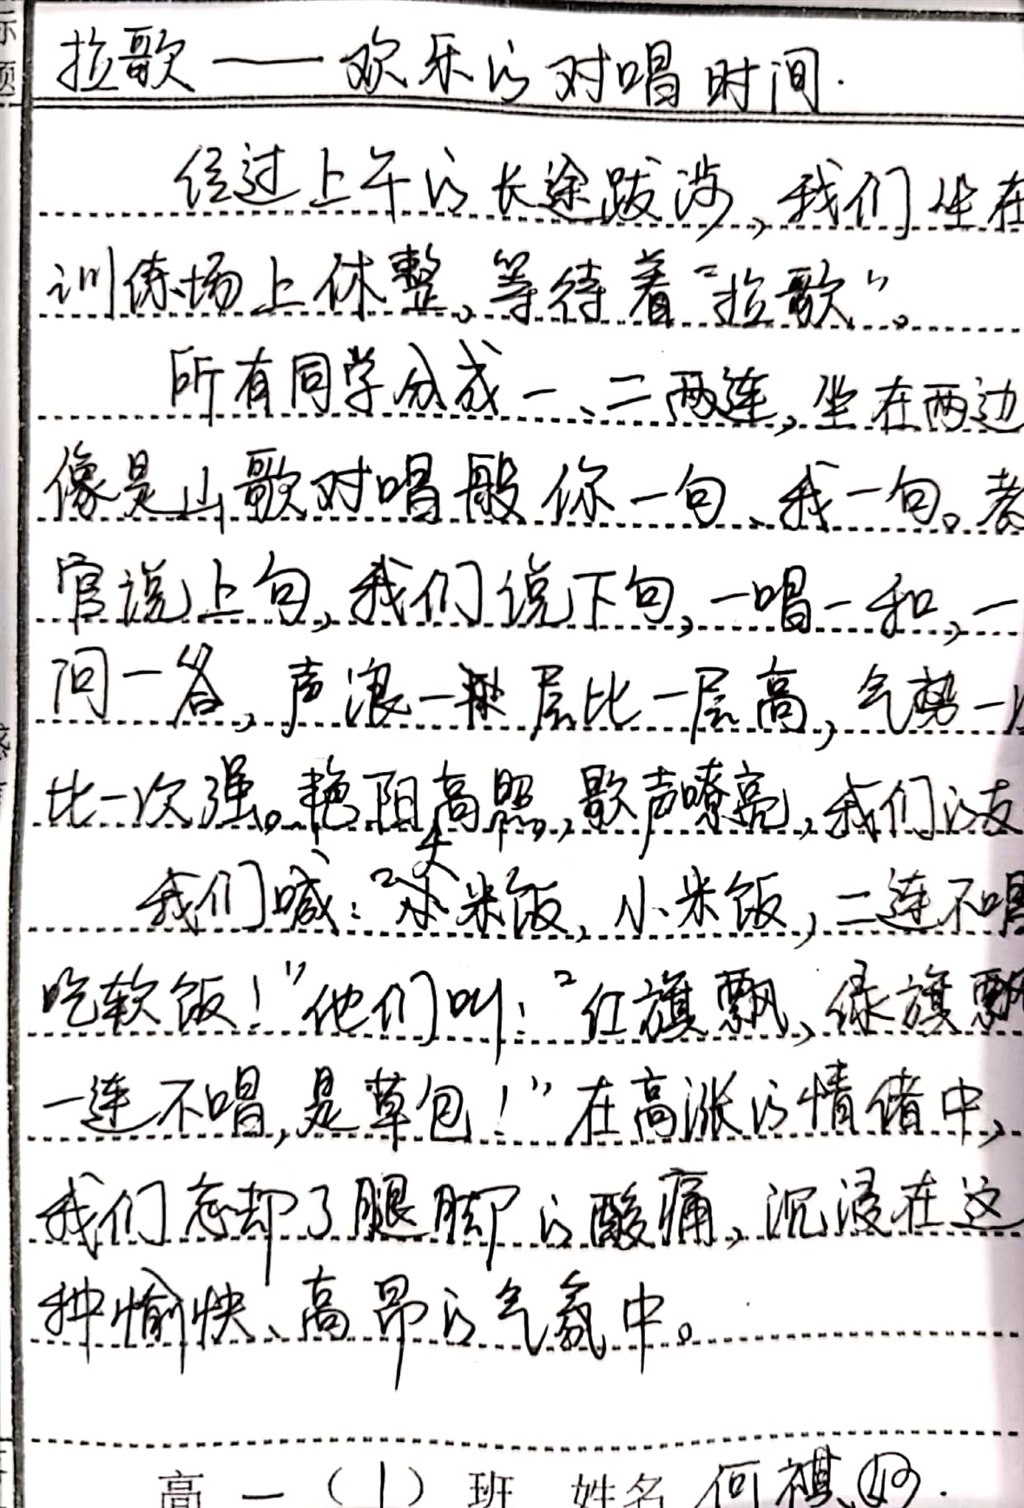 标题
拉歌——欢乐的对唱时间.
经过上午的长途跋涉,我们坐在
训练场上休整,等待着“拉歌”。
所有同学分成一、二两连,坐在两边
像是山歌对唱般你一句、我一句。教
官说上句,我们说下句,一唱一和,一
问一答,声浪一层比一层高,气势一次
比一次强。艳阳高照,歌声嘹亮,我们的友
我们喊:“大米饭,小米饭,二连不唱
吃软饭!”他们叫:“红旗飘,绿旗飘
一连不唱,是草包!”在高涨的情绪中,
我们忘却了腿脚的酸痛,沉浸在这
种愉快、高昂的气氛中。
高一(1)班 姓名 何祺